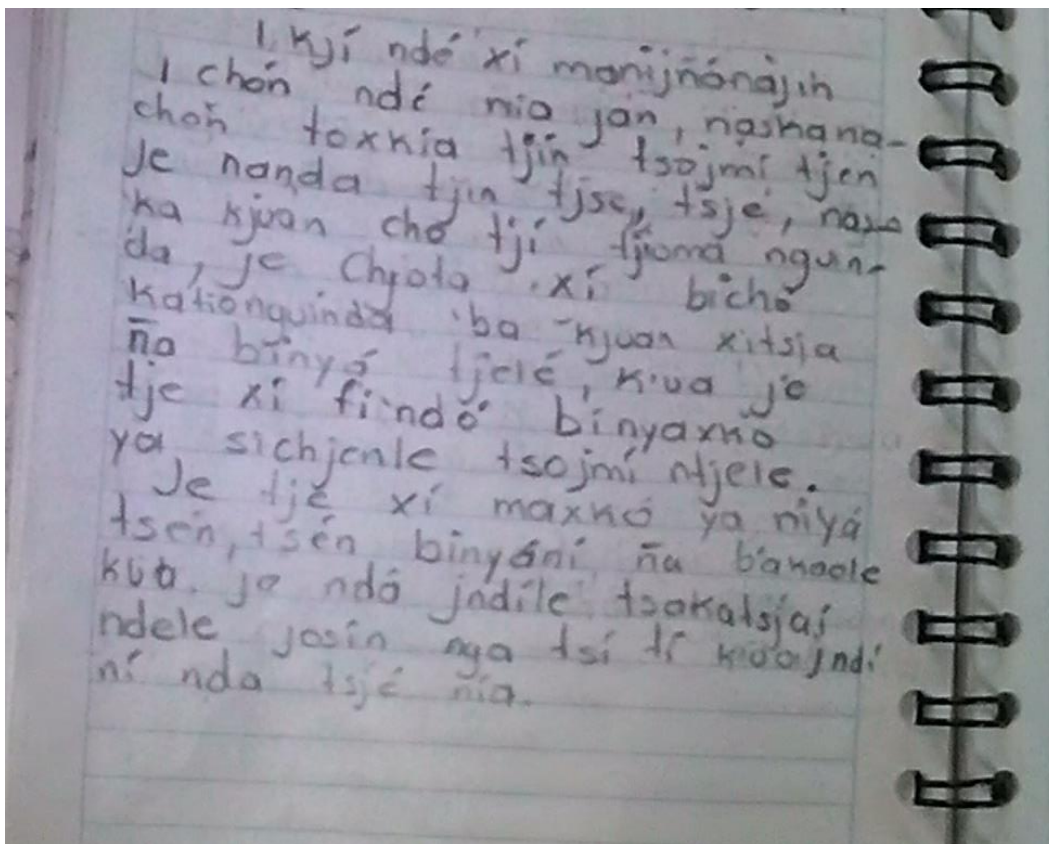 I, kjí ndé xí manijñánájin
I chón ndé nia jan, naskana-
chon toxkía tjín tsojmí tjen
je nanda tjin tjse, tsje, naxo
ka kjuan cho tjí tjioma ngun-
da, je Chjota xí bichó
kationguinda ba kjuan xitsja
ña binyá tjelé, k'ua je
tje xí fi'ndo binyaxkó
ya sichjenle tsojmí ntjele.
Je tjé xí maxkó ya niyá
tsén, tsén binyání ña bakaole
kua. je ndá jndíle tsakatsjaí
ndele josín nga tsí tí jndí
ní nda tsjé nia.